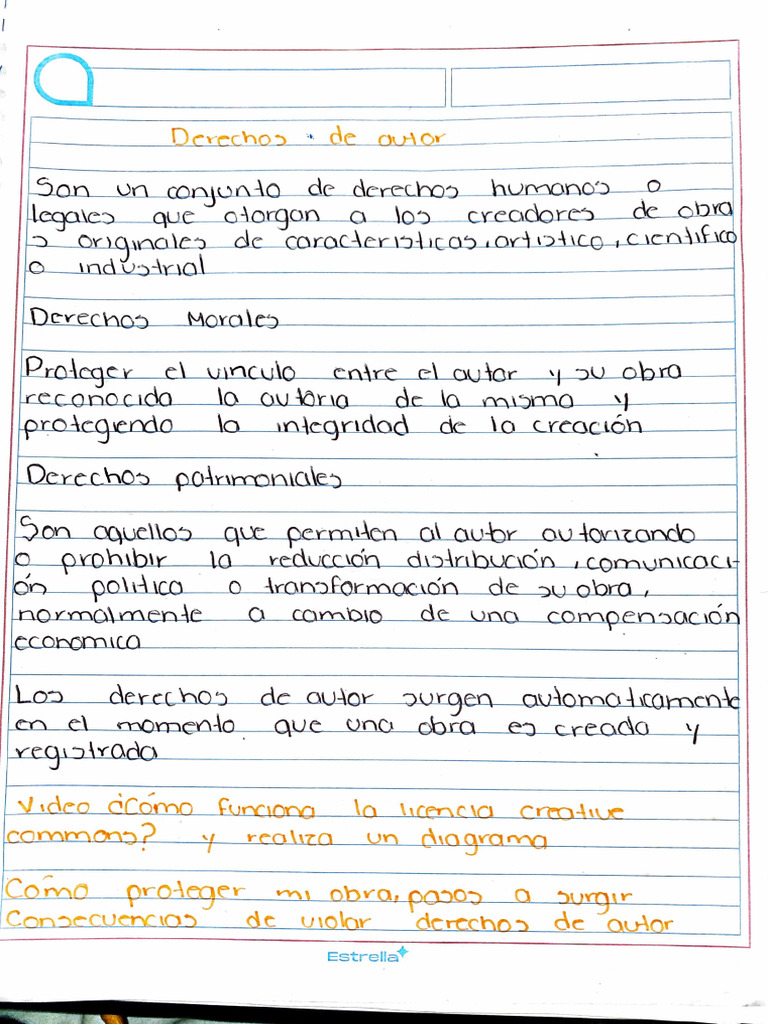 Derechos de autor
Son un conjunto de derechos humanos o
legales que otorgan a los creadores de obra
s originales de caracteristicas, artistico, cientifico
o industrial
Derechos Morales
Proteger el vinculo entre el autor y su obra
reconocida la autoria de la misma y
protegiendo la integridad de la creación
Derechos patrimoniales
Son aquellos que permiten al autor autorizando
o prohibir la reducción distribución, comunicaci-
ón politica o transformación de su obra,
normalmente a cambio de una compensación
economica
Los derechos de autor surgen automaticamente
en el momento que una obra es creada y
registrada
Video ¿Cómo funciona la licencia creative
commons? y realiza un diagrama
Como proteger mi obra, pasos a surgir
Consecuencias de violar derechos de autor
Estrella